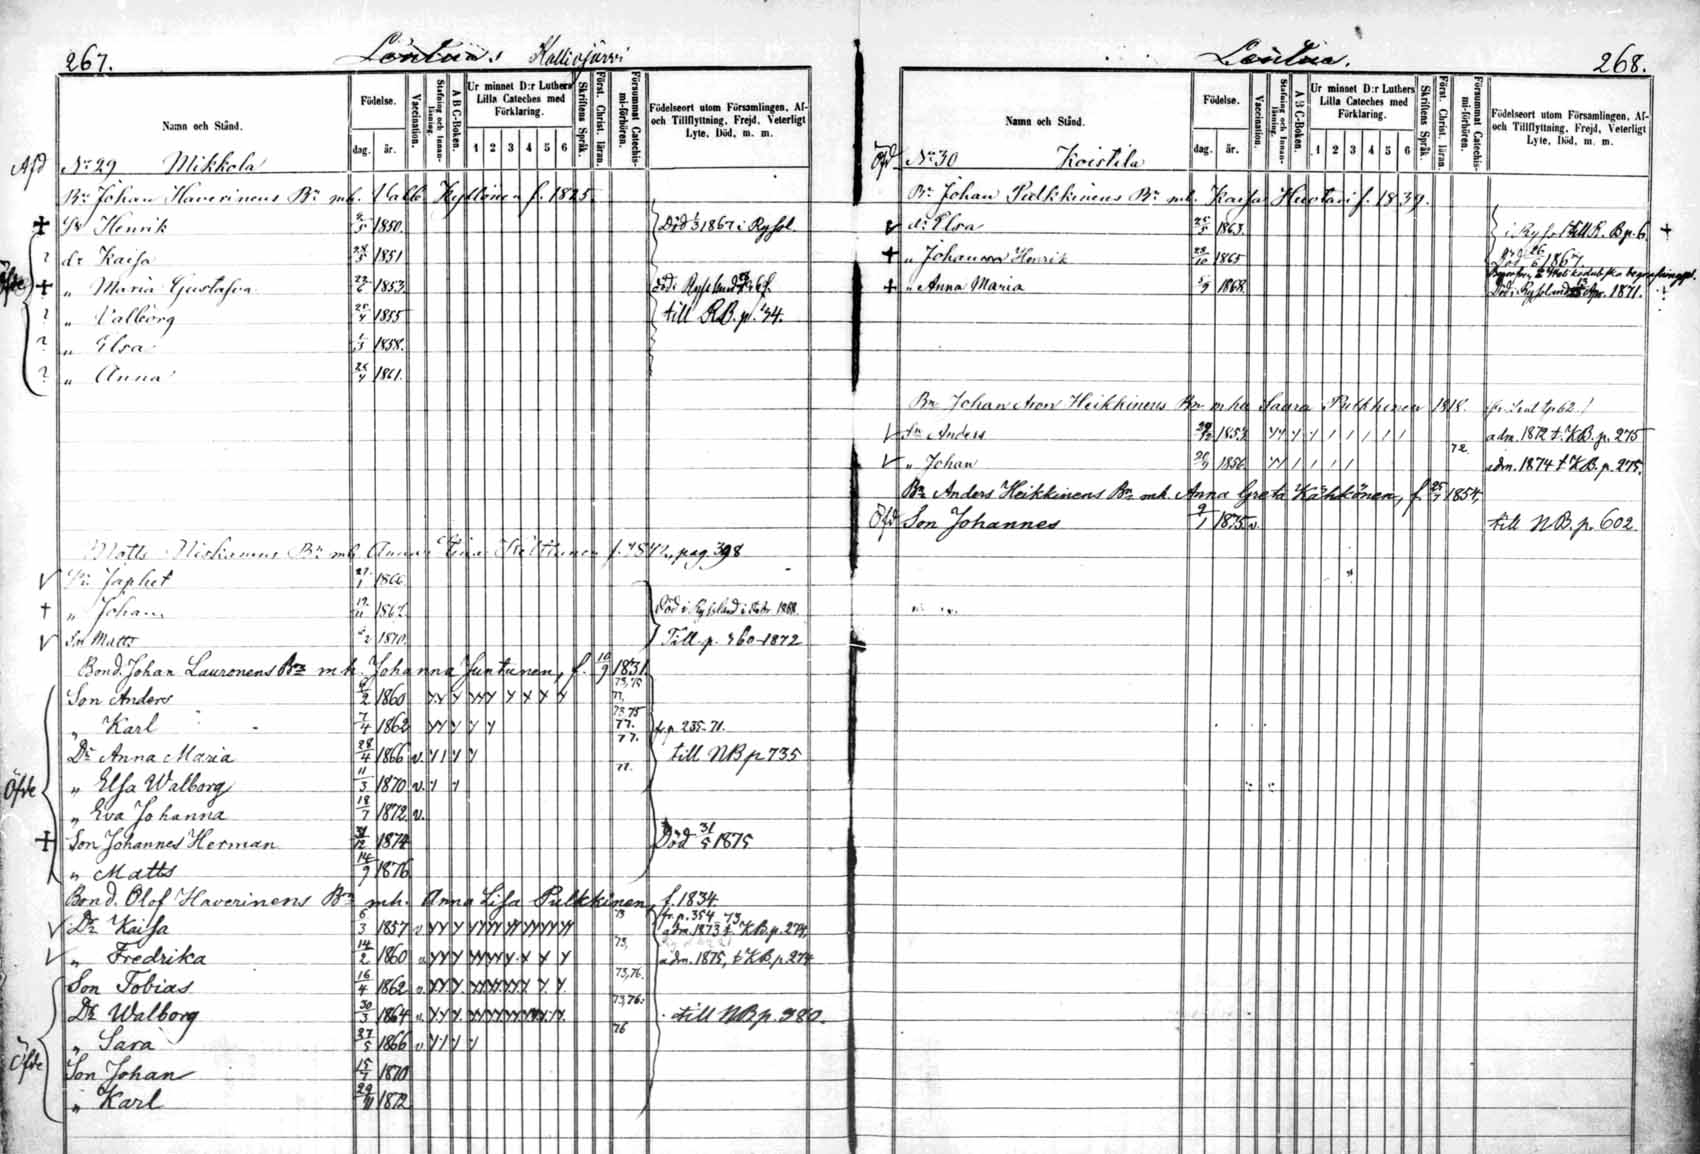 267.
Löntua, Kalliojärvi
Namn och Stånd.
Födelse.
dag.
år.
Vaccination.
Stafning och Innan-läsning.
A B C-Boken.
Ur minnet D:r Luthers Lilla Cateches med Förklaring.
1 2 3 4 5 6
Skriftens Språk.
Först. Christ. läran.
Försummat Catechis-mi-förhören.
Födelseort utom Församlingen, Af- och Tillflyttning, Frejd, Veterligt Lyte, Död, m. m.
Afd No 29 Mikkola
Bn Johan Haverinens Bn mh. Valb. Kyllönen f. 1825.
Sn Henrik 1850. Död 1867 i Ryssl.
? dr Kaisa 1851
Öfde " Maria Gustafva 1853
? " Valborg 1855 till R.B. p. 
? " Elsa 1858.
? " Anna 1861.
Matts Niskanens Bn mh Anna f. 1842, pag. 398
Sn Japhet 27/1 1866
† " Johan 1867 Död i Ryssland 1868.
Sn Matts 1870. Till p. 360-1872
Bond. Johan Lauronens Bn mh. Johanna Juntunen, f. 10/9 1831.
Son Anders 1860 73, 75 77.
" Karl 7/4 1862 73 75 77. fr. p. 235-71.
Dr Anna Maria 28/4 1866 v. 77. till NB p 735
Öfde " Elsa Walborg 11/3 1870 v. 77.
" Eva Johanna 18/7 1872 v.
Son Johannes Herman 31/12 1874 Död 31/5 1875
" Matts 14/9 1876
Bond. Olof Haverinens Bn mh. Anna Lisa Pulkkinen, f. 1834
Dr Kaisa 6/3 1857 v 73 fr. p. 354-73 adm. 1873 t. KB. p. 274,
" Fredrika 14/2 1860 v. 73, adm. 1875, t KB. p. 274
Son Tobias 16/4 1862 v. 73, 76.
Dr Walborg 30/3 1864 v. 73, 76. till NB p. 380.
" Sara 27/5 1866 v. 76
Öfde Son Johan 15/7 1870
" Karl 29/11 1872
Löntua.
268.
Namn och Stånd.
Födelse.
dag.
år.
Vaccination.
Stafning och Innan-läsning.
A B C-Boken.
Ur minnet D:r Luthers Lilla Cateches med Förklaring.
1 2 3 4 5 6
Skriftens Språk.
Först. Christ. läran.
Försummat Catechis-mi-förhören.
Födelseort utom Församlingen, Af- och Tillflyttning, Frejd, Veterligt Lyte, Död, m. m.
Öfd No 30 Koistila
Bn Johan Pulkkinens Bn mh. Kaisa Huotari f. 1839.
dr Elsa 25/5 1863. i Ryssl till R. B p. 6.
" Johan Henrik 1865 Död 1867.
" Anna Maria 5/9 1868. Död i Ryssland Apr. 1871.
Bn Johan Aron Heikkinens Bn mh Saara Pulkkinen 1818.
Sn Anders 1853 72. adm. 1872 t. KB. p. 275
" Johan 1856 adm. 1874 t KB. p. 275.
Bn Anders Heikkinens Bn mh. Anna Greta Kähkönen, f. 25/7 1854,
Öfd Son Johannes 9/1 1875 v. till NB. p. 602